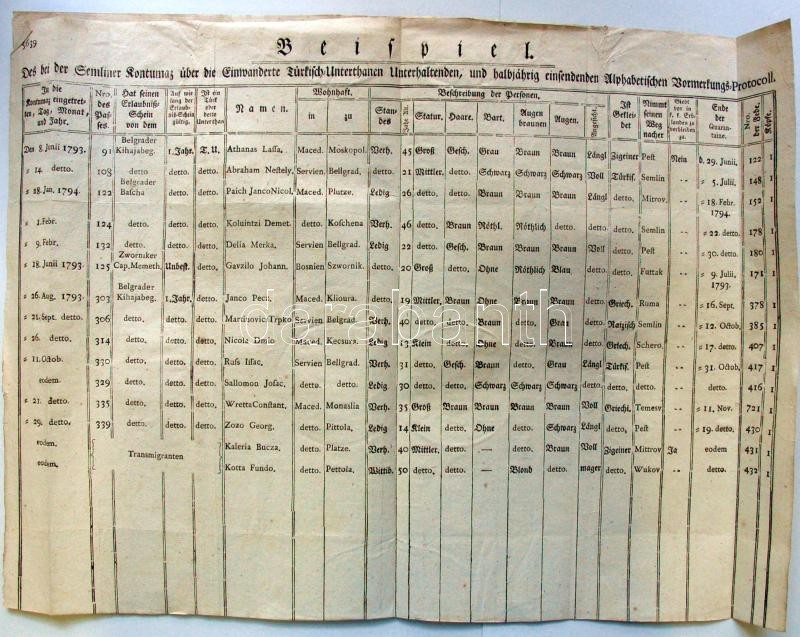 5639
Beispiel.
Des bei der Semliner Kontumaz über die Einwanderte Türkisch-Unterthanen Unterhaltenden, und halbjährig einsendenden Alphabetischen Vormerkungs-Protocoll.
In die Kontumaz eingetretten, Tag, Monat, und Jahr. Nro. des Passes. Hat seinen Erlaubniß-Schein von dem Auf wie lang der Erlaubniß-Schein gültig. Ist ein Türk oder detto Unterthan Namen. Wohnhaft. in zu Beschreibung der Personen. Standes Alt. Statur. Haare. Bart. Augen braunen. Augen. Angesicht. Ist Gekleidet Nimmt seinen Weg nacher Giebt vor in k. k. Erblanden zu verbleiben Ende der Quarantaine. Nro. der Fede. Köpfe.
Den 8. Junii 1793. 91 Belgrader Kihajabeg. 1. Jahr. T. U. Athanas Lassa. Maced. Moskopol. Verh. 45 Groß Gesch. Grau Braun Braun Längl Zigeiner Pest Nein d. 29. Junii. 122 1
= 14. detto. 108 detto. detto. detto. Abraham Nestely. Servien. Bellgrad. detto. 21 Mittler. detto. Schwarz Schwarz Schwarz Voll Türkis. Semlin -- = 5. Julii. 148 1
= 28. Jan. 1794. 122 Belgrader Bascha detto. detto. Paich JancoNicol. Maced. Plutze. Ledig 26 detto. detto. Braun Braun Braun Längl detto. Mitrov. -- = 18. Febr. 1794. 152 1
= 1. Febr. 124 detto. detto. detto. Koluintzi Demet. detto. Koschena Verh. 46 Mittler. Braun Röthl. Röthlich detto. detto. detto. Semlin -- = 22. detto. 178 1
= 9. Febr. 132 detto. detto. detto. Delia Merka. Servien Bellgrad. Ledig 22 detto. Gesch. Braun Braun Braun Voll detto. Pest -- = 30. detto. 180 1
= 18. Junii 1793. 125 Zworniker Cap. Memeth. Unbest. detto. Gavzilo Johann. Bosnien Szwornik. detto. 20 Groß detto. Ohne Röthlich Blau detto. detto. Futtak -- = 9. Julii, 1793. 171 1
= 26. Aug. 1793. 303 Belgrader Kihajabeg. 1. Jahr. detto. Janco Pecti. Maced. Klioura. detto. 19 Mittler. Braun Ohne Braun Braun detto. Griech. Ruma -- = 16. Sept. 378 1
= 21. Sept. detto. 306 detto. detto. detto. Marinovic Trpko Servien Belgrad Verh. 40 detto. detto. Braun detto. Grau detto. Raizisch Semlin -- = 12. Octob. 385 1
= 26. detto. 314 detto. detto. detto. Nicola Dmio Maced. Kecsura. Ledig 13 Klein detto. Ohne detto. Braun detto. Griech. Schero. -- = 17. detto. 407 1
= 11. Octob. 330 detto. detto. detto. Rafs Issac. Servien Bellgrad. Verh. 31 detto. Gesch. Braun detto. Grau Längl Türkis. Pest -- = 31. Octob. 417 1
eodem. 329 detto. detto. detto. Sallomon Josac. detto. detto. Ledig. 30 detto. detto. Schwarz Schwarz Schwarz detto. detto. detto. -- detto. 416 1
= 21. detto. 335 detto. detto. detto. WrettaConstant. Maced. Monaslia Verh. 35 Groß Braun Braun Braun Braun Voll Griechi. Temesv -- = 11. Nov. 721 1
= 29. detto. 339 detto. detto. detto. Zozo Georg. detto. Pittola. Ledig 14 Klein detto. Ohne detto. Schwarz Längl detto. Pest -- = 19. detto. 430 1
eodem. Transmigranten Kaleria Bucza. detto. Platze. Verh. 40 Mittler. detto. — detto. Braun Voll Zigeiner Mittrov Ja eodem 431 1
eodem. Kotta Fundo. detto. Pettola. Wittib. 50 detto. detto. — Blond detto. mager detto. Wukov -- detto. 432 1
darabanth